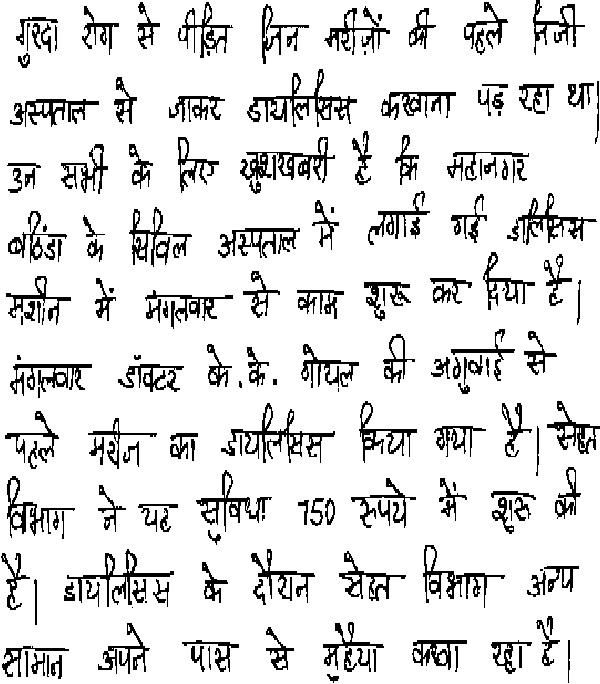 गुरदा रोग से पीड़ित जिन मरीज़ों की पहले निजी
अस्पताल से जाकर डायलिसिस करवाना पड़ रहा था।
उन सभी के लिए खुशखबरी है कि महानगर
बठिंडा के सिविल अस्पताल में लगाई गई डालिसिस
मशीन में मंगलवार से काम शुरू कर दिया है।
मंगलवार डॉक्टर के.के. गोयल की अगुवाई से
पहले मरीज का डायलिसिस किया गया है। सेहत
विभाग ने यह सुविधा 750 रुपये में शुरू की
है। डायलिसिस के दौरान सेहत विभाग अन्य
सामान अपने पास से मुहैया करवा रहा है।